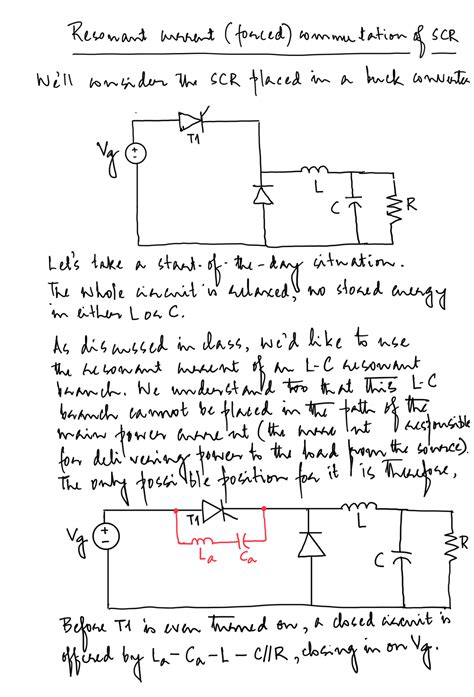 Resonant current (forced) commutation of SCR
We'll consider the SCR placed in a buck converter
T1
Vg
L
C
R
Let's take a start-of-the-day situation.
The whole circuit is relaxed, no stored energy
in either L or C.
As discussed in class, we'd like to use
the resonant current of an L-C resonant
branch. We understand too that this L-C
branch cannot be placed in the path of the
main power current (the current responsible
for delivering power to the load from the source).
The only possible position for it is therefore,
T1
Vg
La
Ca
L
C
R
Before T1 is even turned on, a closed circuit is
offered by La-Ca-L-C//R, closing in on Vg.